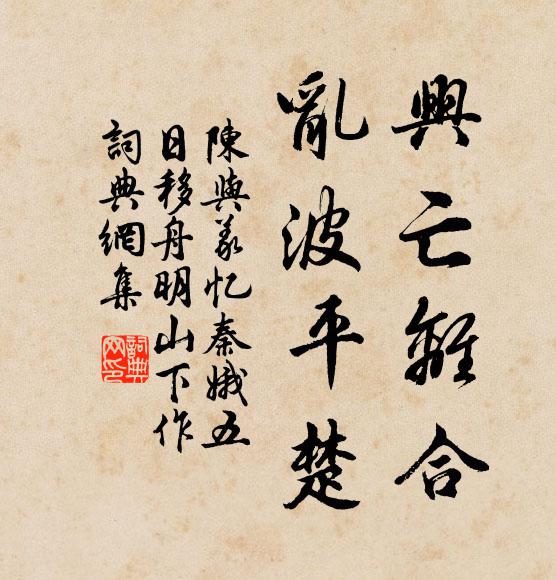 興亡離合
亂波平楚
陳與義憶秦娥五
日移舟明山下作
詞典網集
詞典
网印